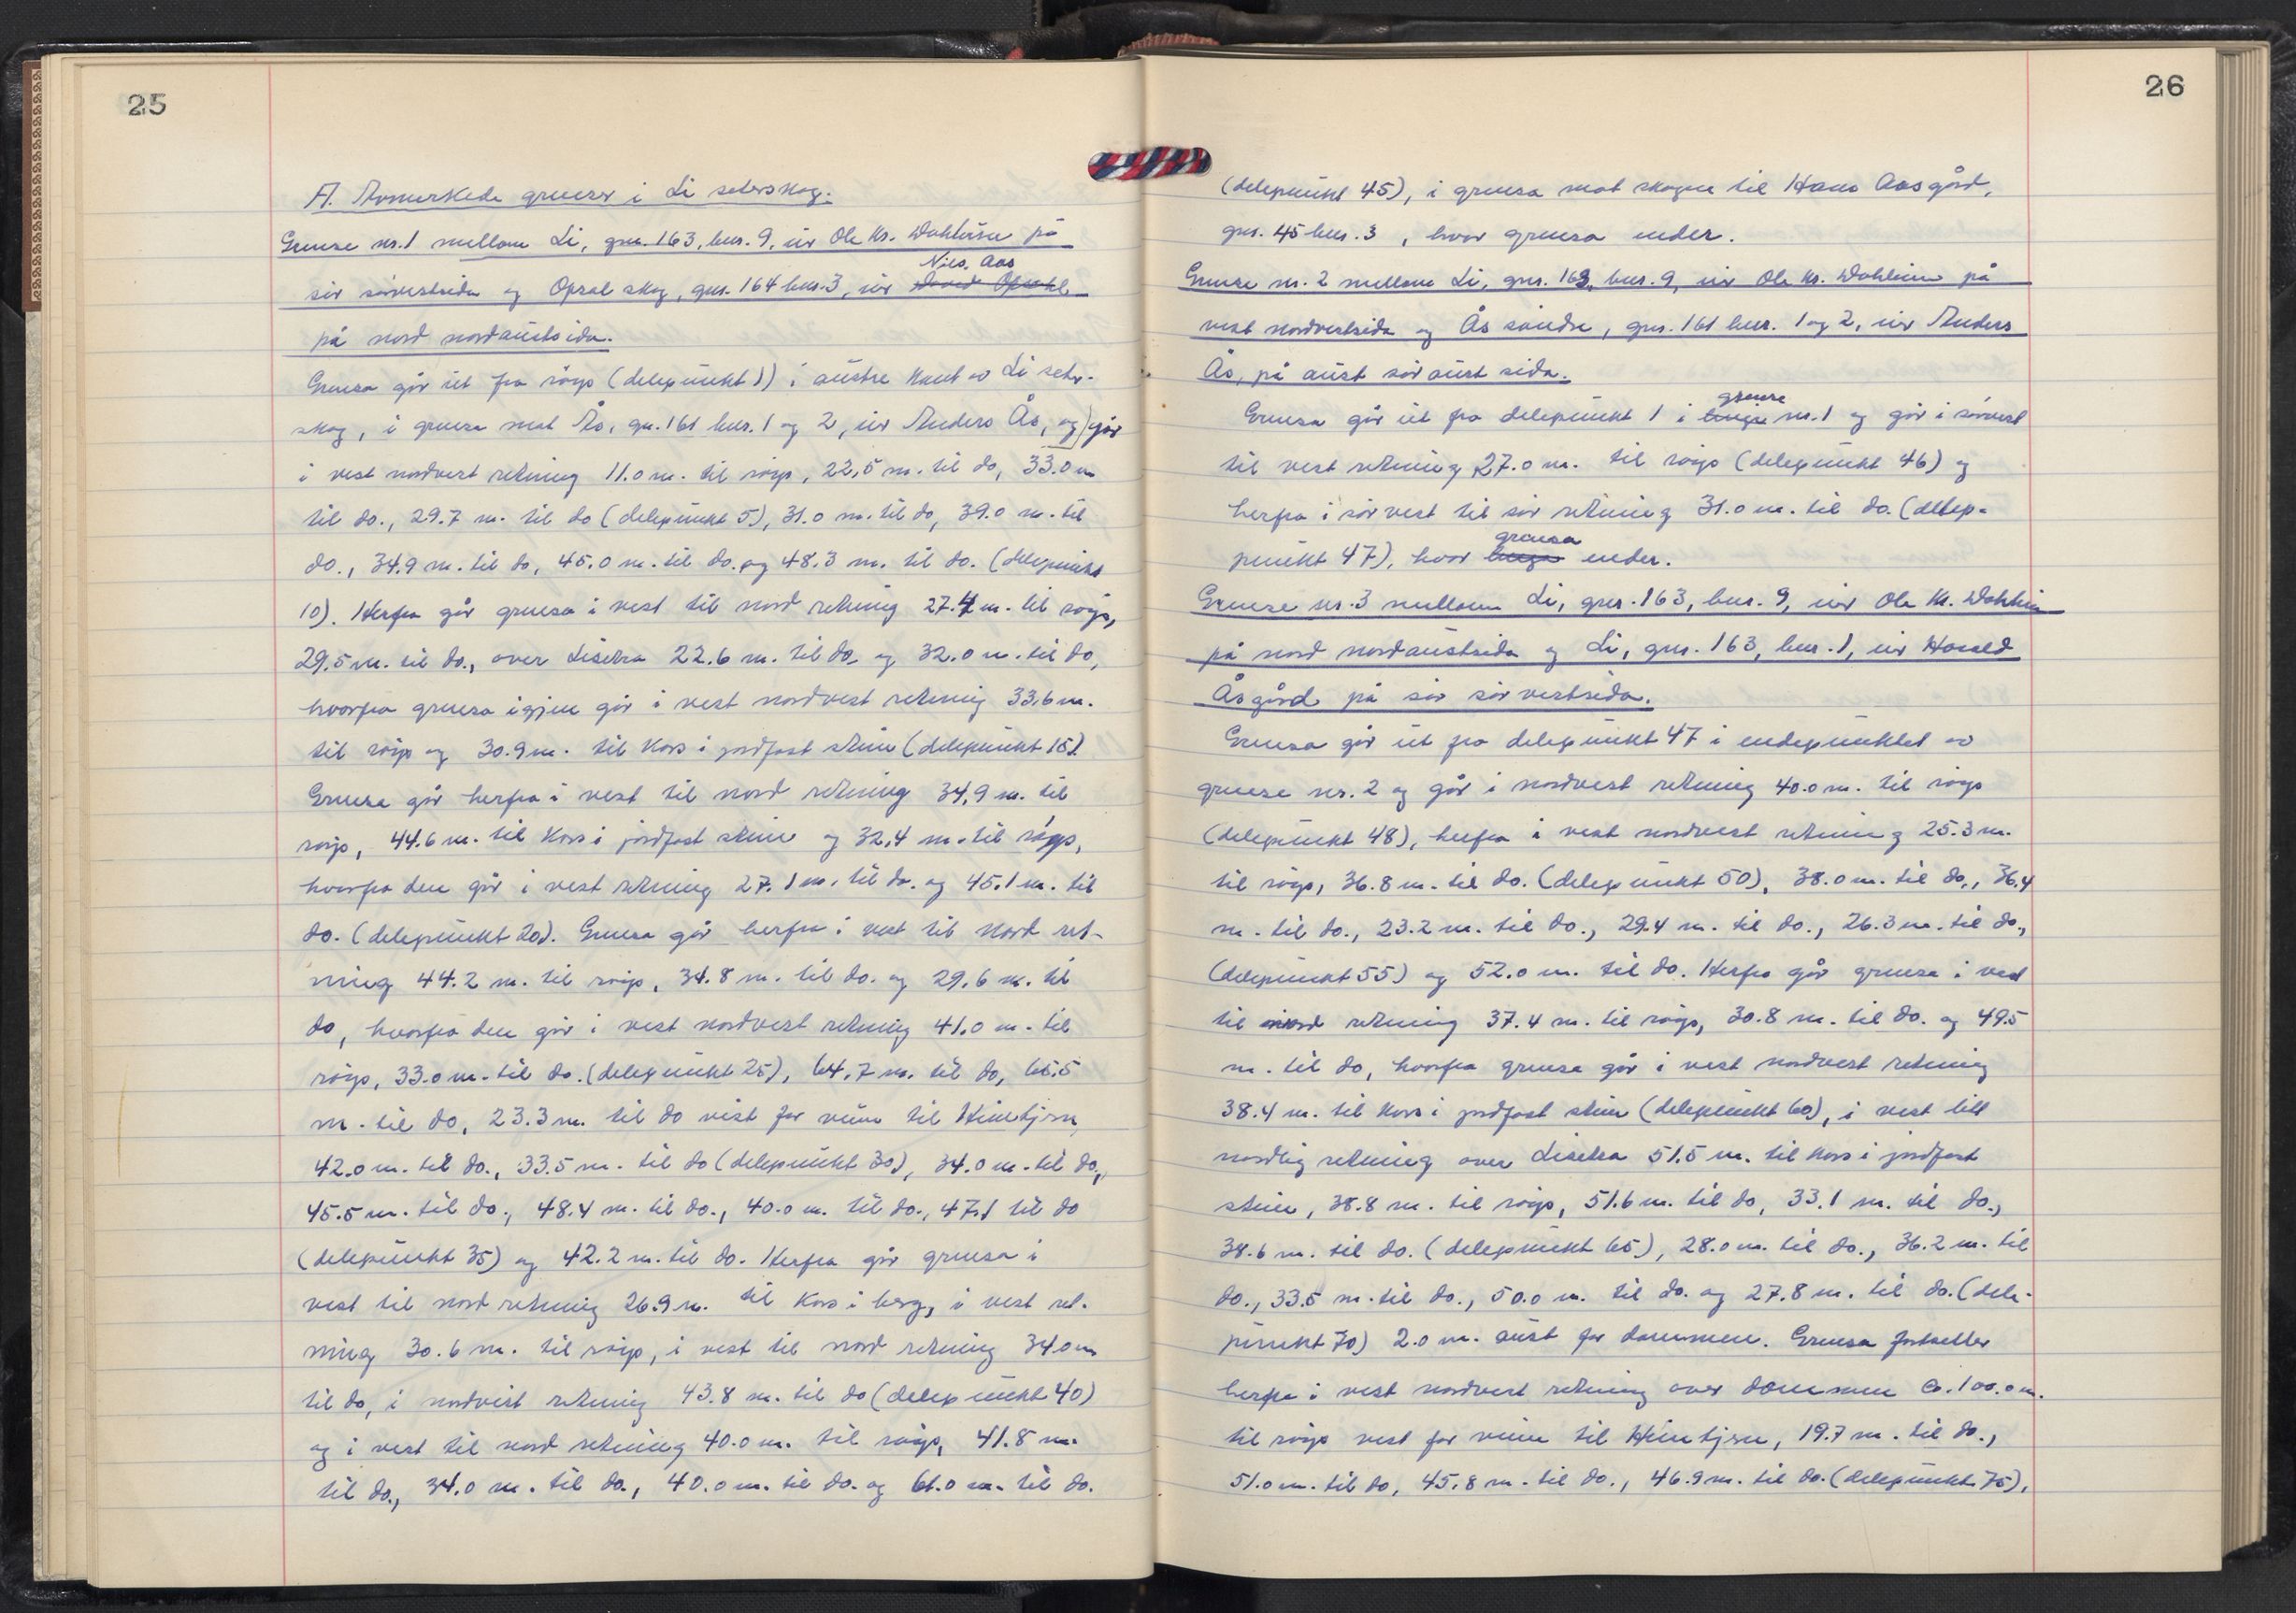 25
A. Avmerkede grenser i Li seterskog.
Grense nr. 1 mellom Li, gnr. 163, bnr. 9, eir Ole Kr. Dahlein på
Nils Aas
sør sørvestsida og Opsal skog, gnr. 164 bnr. 3, eir David Opsahl
på nord nordaustsida.
Grensa går ut fra røys (delepunkt 1) i austre kant av Li seter-
skog, i grensa mot Ås, gnr. 161 bnr. 1 og 2, eir Anders Ås, og går
i vest nordvest retning 11.0 m. til røys, 22,5 m. til do, 33.0 m
til do., 29.7 m. til do (delepunkt 5), 31.0 m. til do, 39.0 m. til
do., 34.9 m. til do, 45.0 m. til do. og 48.3 m. til do. (delepunkt
10). Herfra går grensa i vest til nord retning 27.4 m. til røys,
29.5 m. til do., over Lisetra 22.6 m. til do, og 32.0 m. til do,
hvorfra grensa igjen går i vest nordvest retning 33,6 m.
til røys og 30.9 m. til kors i jordfast stein (delepunkt 15).
Grensa går herfra i vest til nord retning 34,9 m. til
røys, 44.6 m. til kors i jordfast stein og 32,4 m. til røys,
hvorfra den går i vest retning 27.1 m. til do. og 45.1 m. til
do. (delepunkt 20). Grensa går herfra i vest til nord ret-
ning 44.2 m. til røys, 34.8 m. til do. og 29.6 m. til
do, hvorfra den går i vest nordvest retning 41.0 m. til
røys, 33.0 m. til do. (delepunkt 25), 64.7 m. til do, 65.5
m. til do, 23.3 m. til do vest for veien til Heimtjern,
42.0 m. til do., 33.5 m. til do (delepunkt 30), 34.0 m. til do.,
45.5 m. til do., 48.4 m. til do., 40.0 m. til do., 47.1 til do
(delepunkt 35) og 42.2 m. til do. Herfra går grensa i
vest til nord retning 26.9 m. til kors i berg, i vest ret-
ning 30.6 m. til røys, i vest til nord retning 34.0 m
til do, i nordvest retning 43.8 m. til do (delepunkt 40)
og i vest til nord retning 40.0 m. til røys, 41.8 m.
til do., 34.0 m. til do., 40.0 m. til do. og 61.0 m. til do.
26
(delepunkt 45), i grensa mot skogen til Hans Aasgård,
gnr. 45 bnr. 3, hvor grensa ender.
Grense nr. 2 mellom Li, gnr. 163, bnr. 9, eir Ole Kr. Dahlein på
vest nordvestsida og Ås søndre, gnr. 161 bnr. 1 og 2, eir Anders
Ås, på aust sør aust sida.
grense
Grensa går ut fra delepunkt 1 i linje nr. 1 og går i sørvest
til vest retning 27.0 m. til røys (delepunkt 46) og
herfra i sør vest til sør retning 31.0 m. til do. (delep-
grensa
punkt 47), hvor linja ender.
Grense nr. 3 mellom Li, gnr. 163, bnr. 9, eir Ole Kr. Dahlein
på nord nordaustsida og Li, gnr. 163, bnr. 1, eir Harald
Åsgård på sør sør vestsida.
Grensa går ut fra delepunkt 47 i endepunktet av
grense nr. 2 og går i nordvest retning 40.0 m. til røys
(delepunkt 48), herfra i vest nordvest retning 25.3 m.
til røys, 36.8 m. til do. (delepunkt 50), 38.0 m. til do., 36.4
m. til do., 23.2 m. til do., 29.4 m. til do., 26.3 m. til do.,
(delepunkt 55) og 52.0 m. til do. Herfra går grensa i vest
til nord retning 37.4 m. til røys, 30.8 m. til do. og 49.5
m. til do, hvorfra grensa går i vest nordvest retning
38.4 m. til kors i jordfast stein (delepunkt 60), i vest litt
nordlig retning over Lisetra 51.5 m. til kors i jordfast
stein, 38.8 m. til røys, 51.6 m. til do, 33.1 m. til do.,
38.6 m. til do. (delepunkt 65), 28.0 m. til do., 36.2 m. til
do., 33.5 m. til do., 50.0 m. til do. og 27.8 m. til do. (dele-
punkt 70) 2.0 m. aust for dammen. Grensa fortsetter
herfra i vest nordvest retning over dammen ca. 100.0 m.
til røys vest for veien til Heimtjern, 19.7 m. til do.,
51.0 m. til do, 45.8 m. til do., 46.9 m. til do. (delepunkt 75),